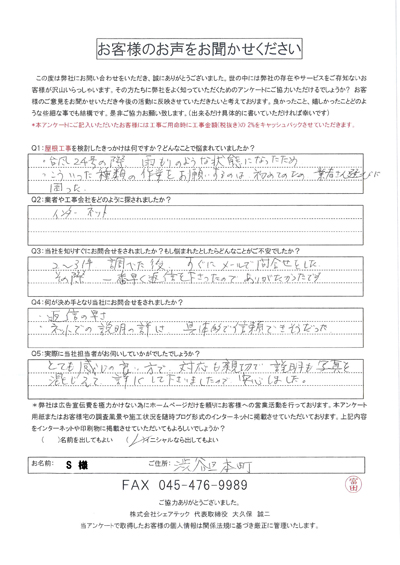 お客様のお声をお聞かせください
この度は弊社にお問い合わせをいただき、誠にありがとうございました。世の中には弊社の存在やサービスをご存知ないお
客様が沢山いらっしゃいます。その方たちに弊社をよく知っていただくためのアンケートにご協力いただけるでしょうか? お客
様のご意見をお聞かせいただき今後の活動に反映させていきたいと考えております。良かったこと、嬉しかったことどのよう
な些細な事でも結構です。是非ご協力お願い致します。(出来るだけ具体的に書いていただければ幸いです)
*本アンケートにご記入いただいたお客様には工事ご用命時に工事金額(税抜き)の2%をキャッシュバックさせていただきます。
Q1:屋根工事を検討したきっかけは何ですか?どんなことで悩まれていましたか?
・台風24号の際 雨もりのような状態になったため
・こういった種類の作業をお願いするのは 初めてのため 業者さん選びに
困った。
Q2:業者や工事会社をどのように探されましたか?
インターネット
Q3:当社を知りすぐにお問合せをされましたか?もし悩まれたとしたらどんなことがご不安でしたか?
2〜3件 調べた後 すぐにメールで問合せをした
その際 一番早く返信を下さったので ありがたかったです
Q4:何が決め手となり当社にお問合せをされましたか?
・返信の早さ
・ネットでの説明の詳しさ 具体的で信頼できそうだった
Q5:実際に当社担当者がお伺いしていかがでしたでしょうか?
とても感じの良い方で 対応も親切で 説明も写真を
混じえて 詳しくして下さいましたので 安心しました。
*弊社は広告宣伝費を極力かけない為にホームページだけを頼りにお客様への営業活動を行っております。本アンケート
用紙またはお客様宅の調査風景や施工状況を随時ブログ形式のインターネットに掲載させていただいております。上記内容
をインターネットや印刷物に掲載させていただいてもよろしいでしょうか?
( )名前を出してもよい (レ)イニシャルなら出してもよい
お名前: S 様 ご住所: 渋谷区本町
FAX 045-476-9989
ご協力ありがとうございました。
株式会社シェアテック 代表取締役 大久保 誠二
当アンケートで取得したお客様の個人情報は関係法規に基づき厳正に管理いたします。